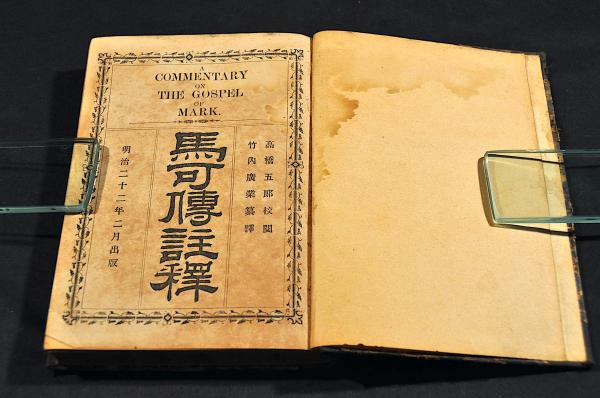 A
COMMENTARY
ON
THE GOSPEL
OF
MARK.
高橋五郎校閲
竹內廣業纂譯
馬可傳註釋
明治二十二年二月出版